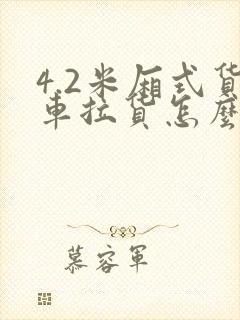 4.2米厢式货
车拉货怎么
慕容军